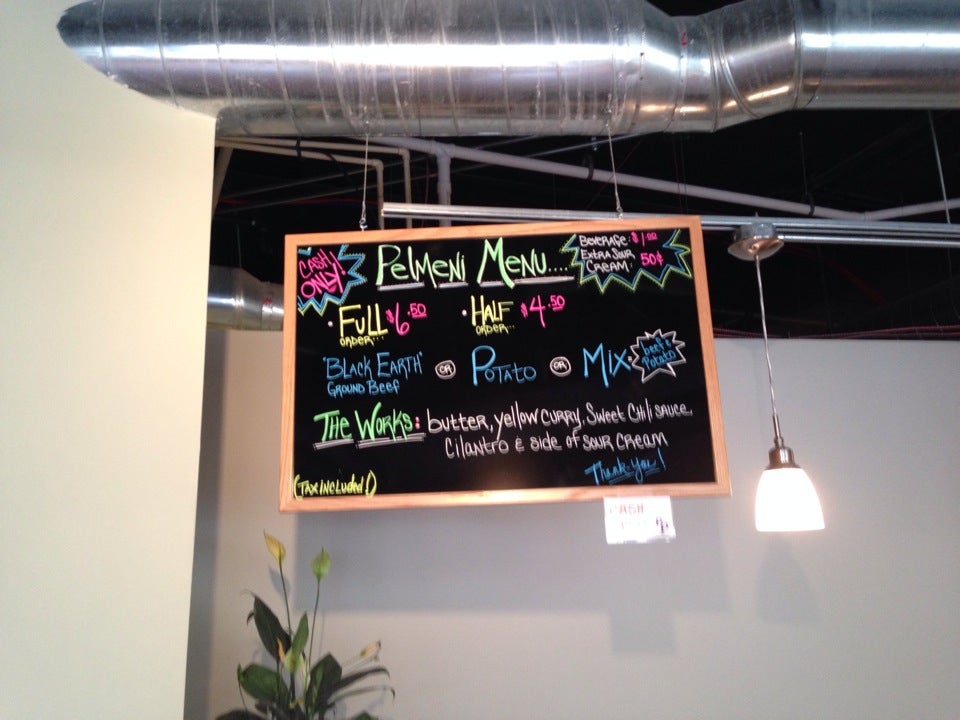 CASH ONLY!
Pelmeni Menu....
BEVERAGE: $1.00
EXTRA SOUR CREAM: 50¢
• FULL ORDER... $6.50
• HALF ORDER... $4.50
"BLACK EARTH" GROUND BEEF
OR
POTATO
OR
MIX: beef & Potato
THE WORKS: butter, yellow curry, sweet chili sauce,
Cilantro & side of sour cream
Thank-you!
(TAX INCLUDED!)
CASH